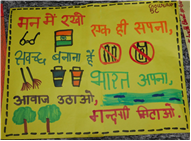 मन में रखो एक ही सपना,
स्वच्छ बनाना है भारत अपना,
आवाज उठाओ, गन्दगी मिटाओ.